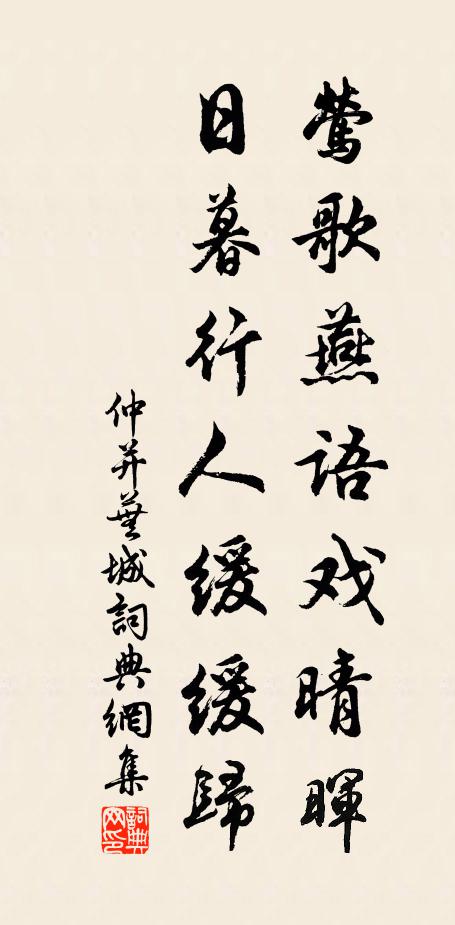 莺歌燕语戏晴暉
日暮行人缓缓歸
仲并蕪城詞典網集
詞典网印